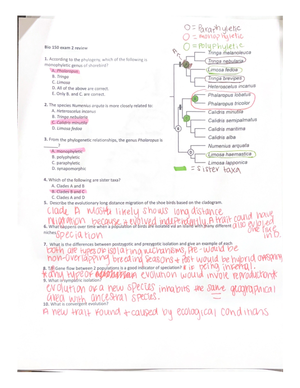 O = Paraphyletic
O = monophyletic
O = polyphyletic
Bio 150 exam 2 review
1. According to the phylogeny, which of the following is
monophyletic genus of shorebird?
A. Phalaropus
B. Tringa
C. Limosa
D. All of the above are correct.
E. Only B. and C. are correct.
2. The species Numenius arquata is more closely related to:
A. Heteroscelus incanus
B. Tringa nebularia
C. Calidris minutilla
D. Limosa fedoa
3. From the phylogenetic relationships, the genus Phalaropus is
______?
A. monophyletic
B. polyphyletic
C. paraphyletic
D. synapomorphic
Tringa melanoleuca
Tringa nebularia
Limosa fedoa
Tringa brevipes
Heteroscelus incanus
Phalaropus lobatus
Phalaropus tricolor
Calidris minutilla
Calidris sempalmatus
Calidris maritima
Calidris alba
Numenius arquata
Limosa haemastica
Limosa lapponica
= Sister taxa
4. Which of the following are sister taxa?
A. Clades A and B
B. Clades B and C
C. Clades A and D
5. Describe the evolutionary long distance migration of the shore birds based on the cladogram.
Clade A mostly likely shows long distance
migration because it evolved independently. A trait could have
also evolved
one time
in D
6. What happens over time when a population of birds are isolated on an island with many different
niches?
speciation
7. What is the differences between postzygotic and prezygotic isolation and give an example of each
both are types of isolating mechanisms, Pre-would be
non-overlapping breeding seasons + post would be hybrid offspring
being infertile.
8. Is gene flow between 2 populations is a good indicator of speciation?
evolution would involve reproduction
9. What is sympatric isolation?
evolution of a new species inhabits the same geographical
area with ancestral species.
10. What is convergent evolution?
A new trait found + caused by ecological conditions